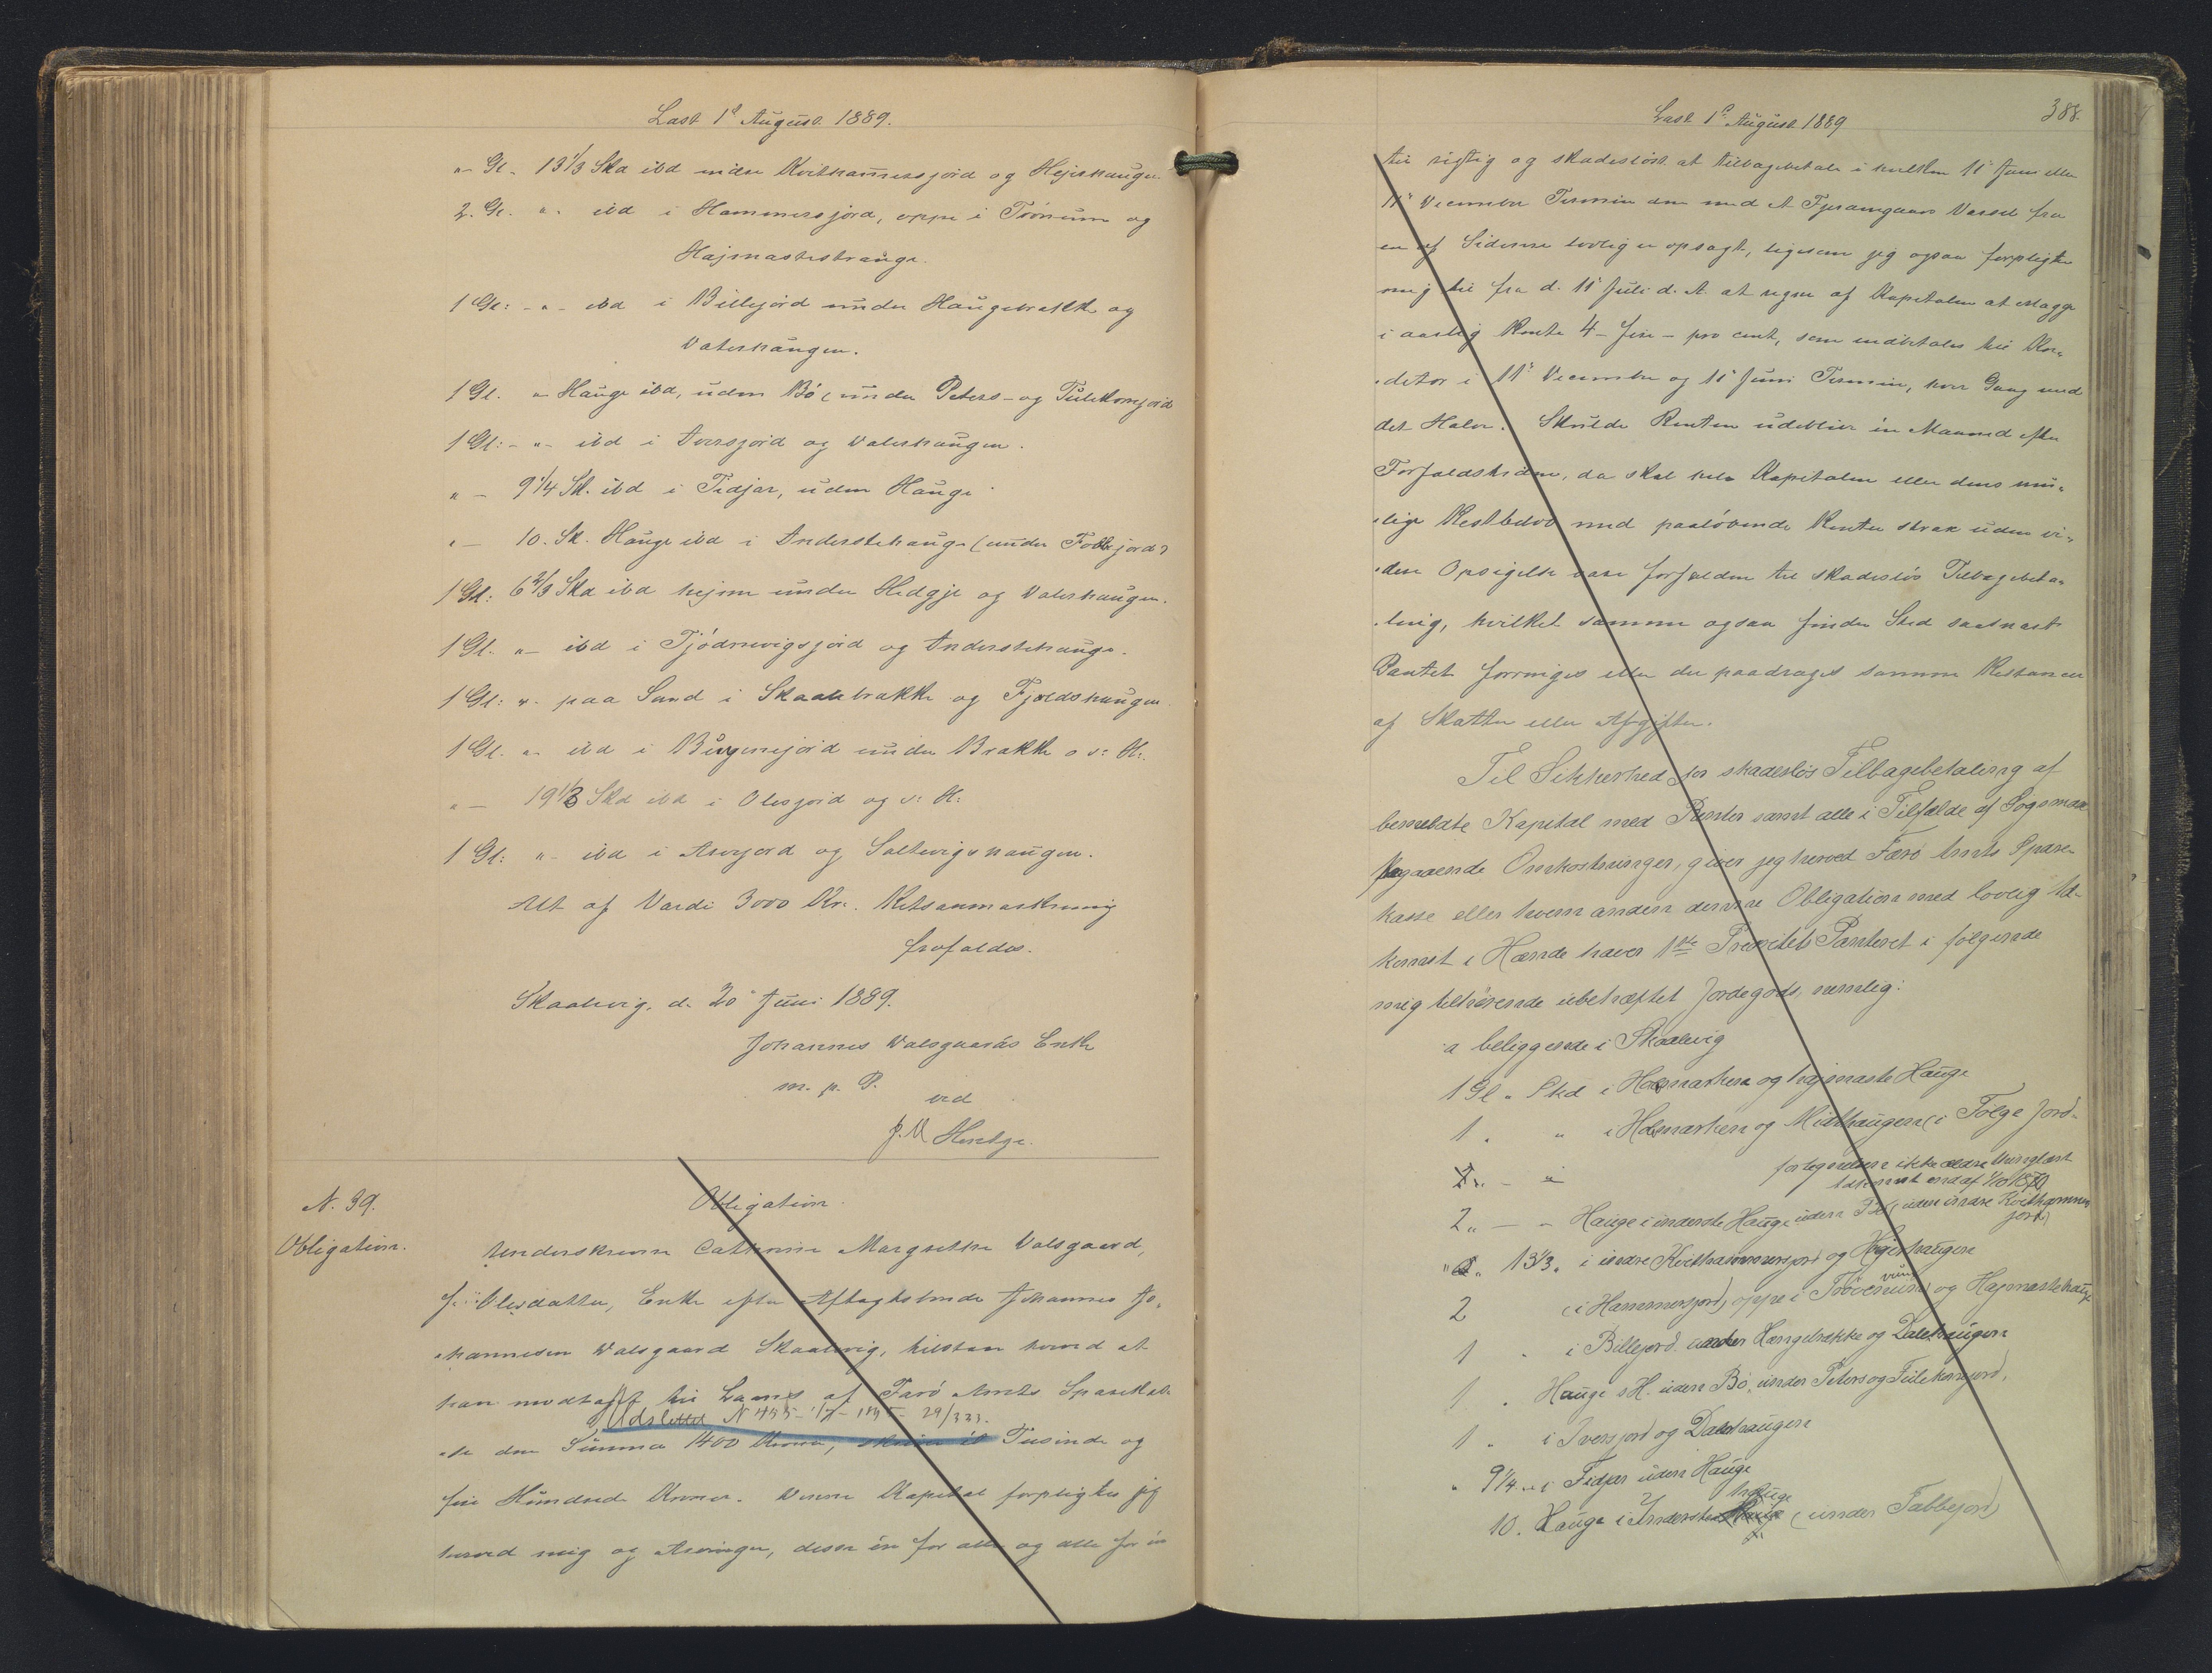 Læst 1st August 1889.
"- Gl. 13 1/3 Skd ibd indre Kvithammersjord og Hejishaugen
2. Gl. ". ibd i Hammersjord, oppe i Trönum og
Hajmastehauge.
1 Gl: - " - ibd i Billejord under Haugebrække og
Dalshaugen.
1 Gl. " Hauge ibd, uden Bö (under Peters- og Tulekonejord
1 Gl: - "- ibd i Iversjord og Dalshaugen.
" - 9 1/4 Sk. ibd i Tidjar, uden Hauge
" - 10. Sk. Hauge ibd i Inderstehauge (under Tobbejord)
1 Gl: 6 2/3 Skd ibd hejme under Hedgje og Dalshaugen.
1 Gl. "- ibd i Tjödnevigsjord og Inderstehauge.
1 Gl: ". paa Sand i Skaalebrække og Fjeldshaugen
1 Gl. ". ibd i Bürgmejord under Brække o s: H:
" - 19 1/3 Skd ibd i Olesjord og s: H:
1 Gl: "- ibd i Averjord og Saltvigshaugen.
Alt af Værdi 3000 Kr. Retsanmærkning
frafaldes.
Skaalevig, d. 20 Juni 1889.
Johannes Dalsgaards Enke
m. p. P.
ved
J. M Hentze.
N. 39.
Obligation.
Obligation.
Underskrevne Cathrine Margrethe Dalsgaard,
f. Olesdatter, Enke efter Aftægtsmand Johannes Jo-
hannesen Dalsgaard Skaalevig, tilstaar herved at
have modtaget til Laans af Færö Amts Sparekas-
Udslettet N 455 - 1/7 - 29/333.
se den Summa 1400 Kroner, skriver et Tusinde og
fire Hundrede Kroner. Denne Kapital forpligter jeg
herved mig og Arvinger, disse en for alle og alle for en
Læst 1st August 1889
388.
til rigtig og skadeslöst at tilbagebetale i hvilken 11' Juni eller
11' December Termin den med et Fjerdingaars Varsel fra
en af Siderne lovlig er opsagt, ligesom jeg ogsaa forpligter
mig til fra d. 11' Juli d. A. at regne af Kapitalen at erlægge
i aarlig Rente 4 - fire - pro cent, som indbetales til Kre-
ditor i 11' December og 11' Juni Termin, hver Gang med
det Halve. Skulde Renten udeblive en Maaned efter
Forfaldstiden, da skal hele Kapitalen eller dens mu-
lige Restbelöb med paalöbende Renter strax uden vi-
dere Opsigelse være forfalden til skadeslös Tilbagebeta-
ling, hvilket samme ogsaa finder Sted saasnart
Pantet forringes eller der paadrages samme Restancer
af Skatter eller Afgifter.
Til Sikkerhed for skadeslös Tilbagebetaling af
bemeldte Kapital med Renter samt alle i Tilfælde af Sögsmaal
paagaaende Omkostninger, giver jeg herved Færö Amts Spare-
kasse eller hvem anden denne Obligation med lovlig Ad-
komst i Hænde haver 1ste Prioritets Panteret i fölgende
mig tilhörende ubehæftet Jordegods, nemlig:
a beliggende i Skaalevig
1 Gl " Skd i Homarken og hajmaste Hauge
1 " " i Homarken og Midthaugen (i Fölge Jord-
fortegnelsen ikke ældre thinglæst
Adkomst end af 1/10 1870)
2 " - - Hauge i inderste Hauge uden Bö (uden indre Kvithammers
jord)
" 13 1/3 " i indre Kvithammersjord og Hejerhaugen
2 (i Hammersjord) oppe i Trövenum og Hajmastehauge
1 " i Billejord under Haugebrække og Dalshaugen
1 " Hauge s H. uden Bö, under Peters og Tulekonejord,
1 " i Iversjord og Dalshaugen
" 9 1/4 " i Tidjar uden Hauge
10. Hauge i Inderste hauge (under Tabbejord)